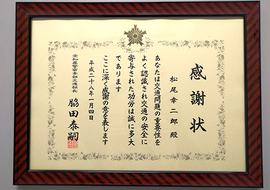 感謝状
松尾幸二郎殿
あなたは交通問題の重要性を
よく認識され交通の安全に
寄与された功労は誠に多大
であります
ここに深く感謝の意を表します
平成二十八年一月四日
脇田泰嗣